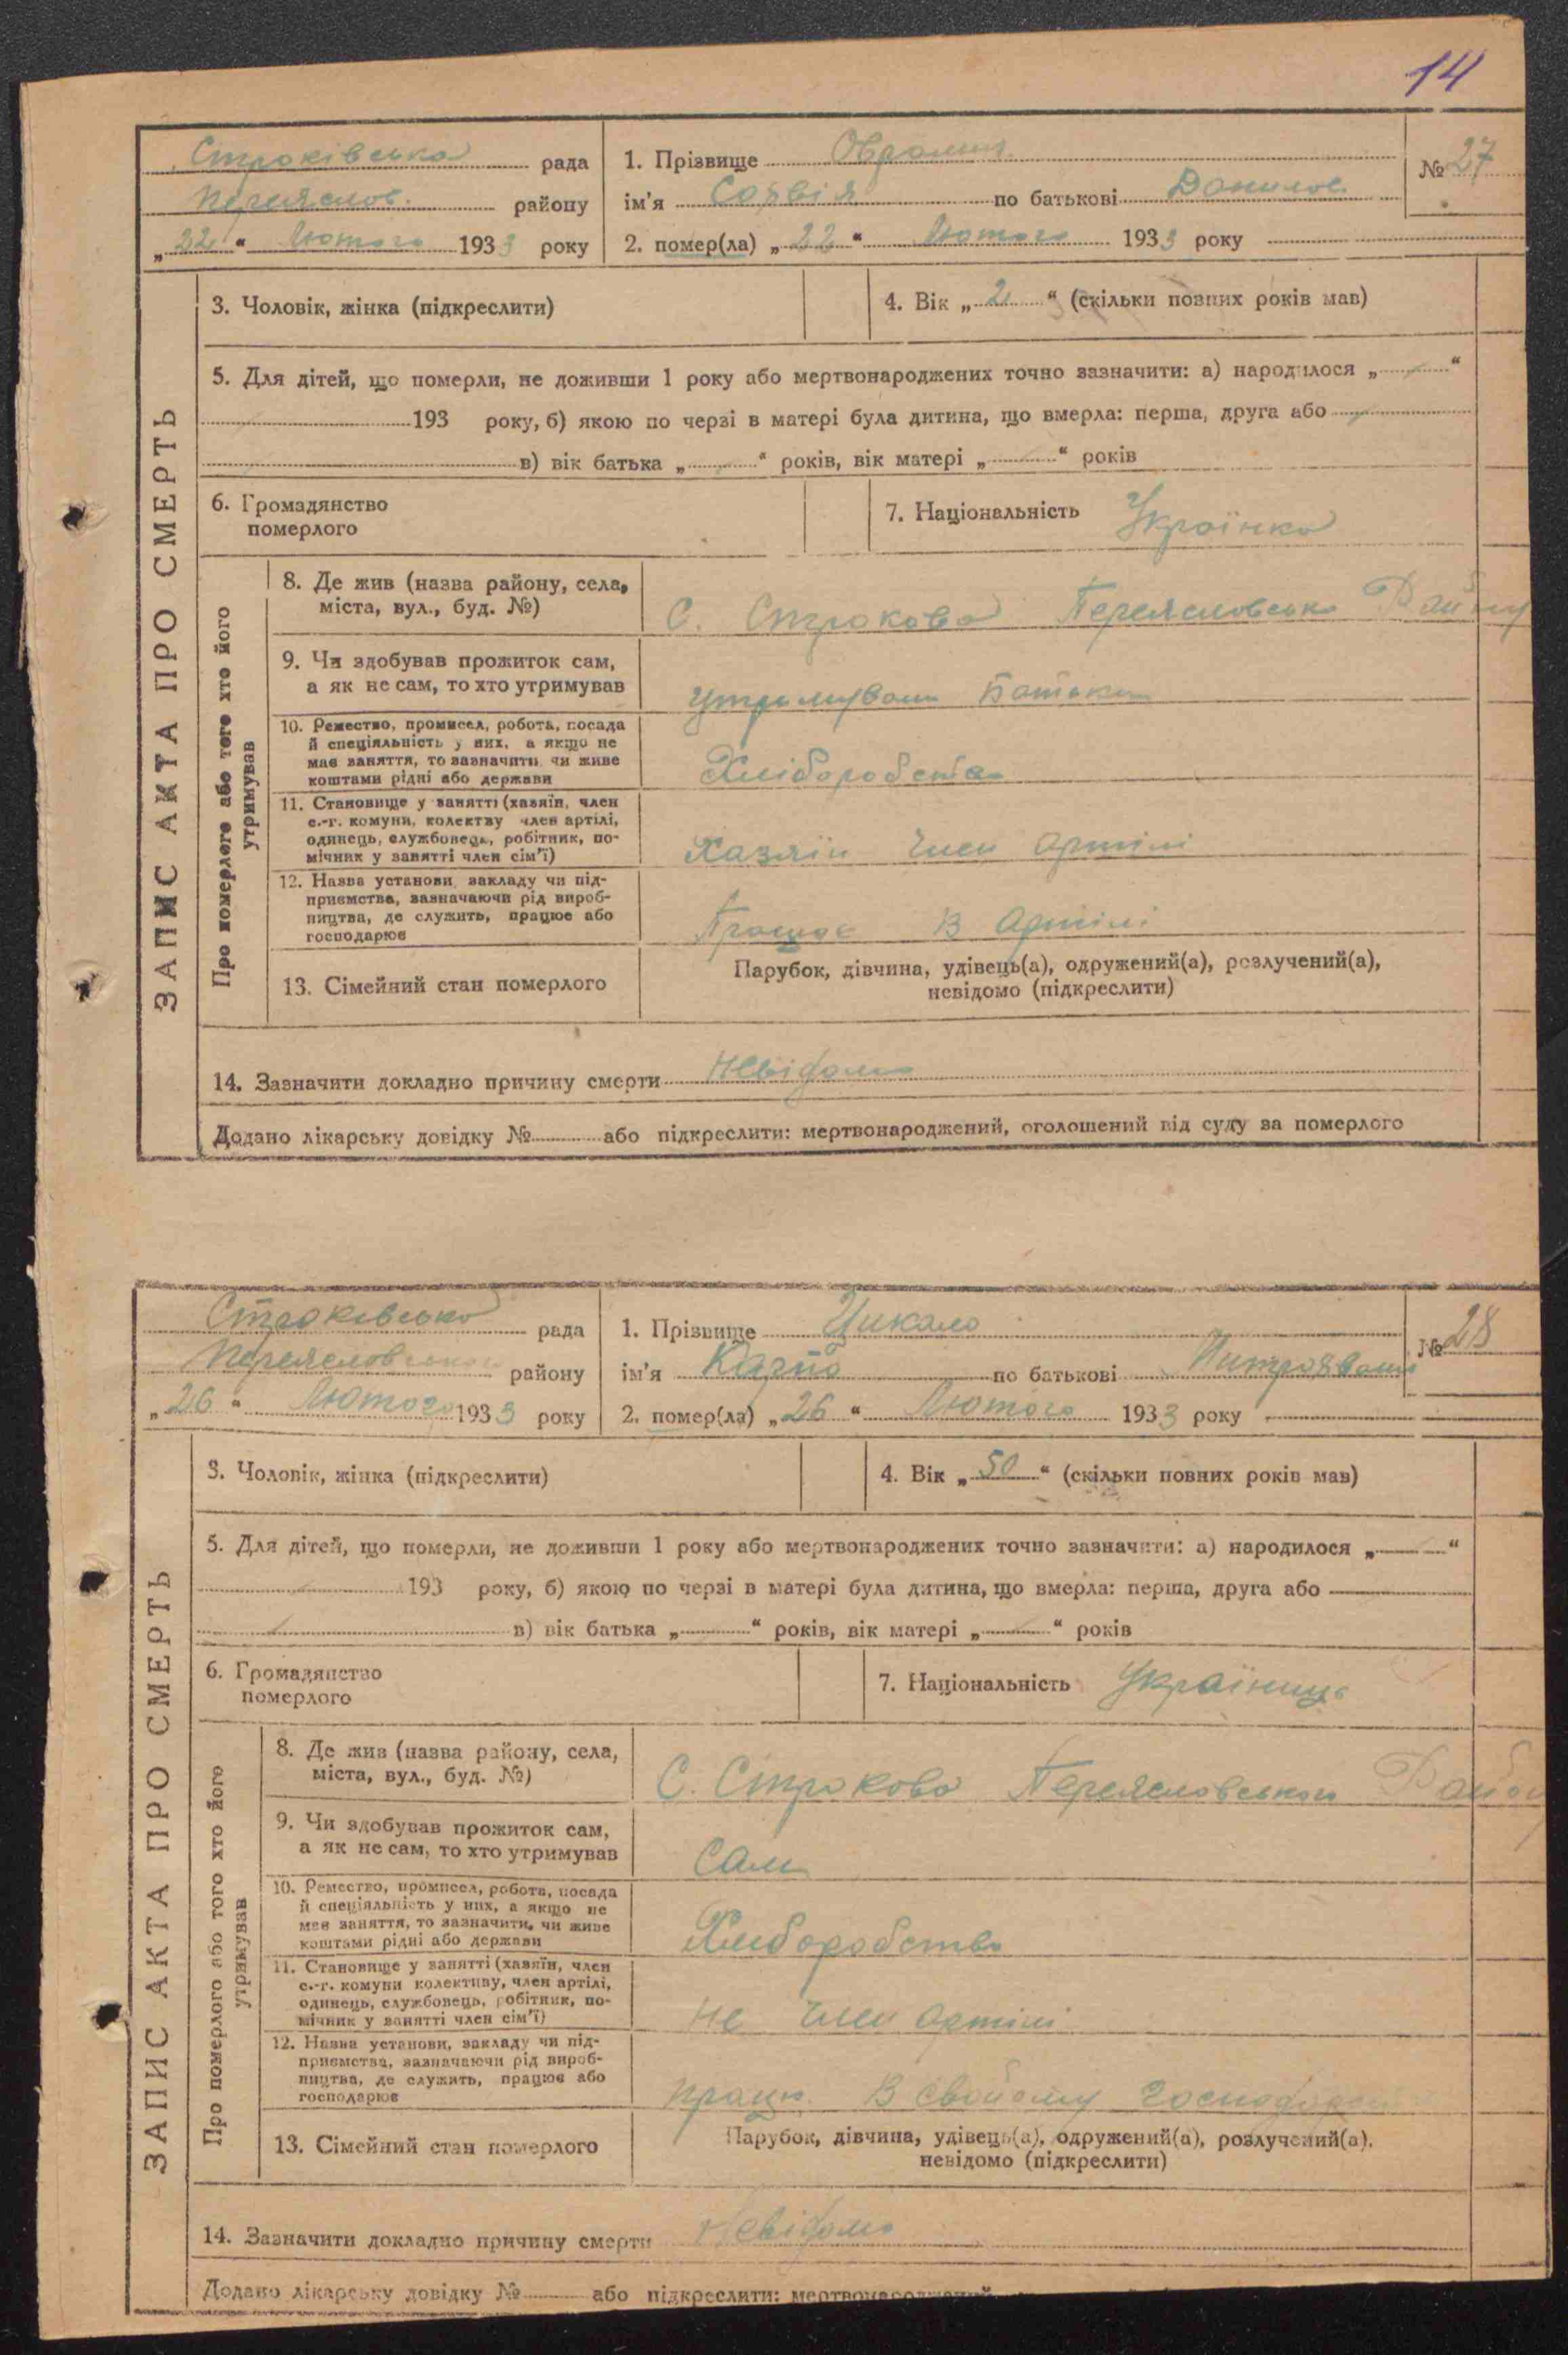 14
Строківська рада
Переяслов. району
„22“ Лютого 1933 року
1. Прізвище
ім'я по батькові Данилов.
2. помер(ла) „22“ Лютого 1933 року
№ 27
ЗАПИС АКТА ПРО СМЕРТЬ
3. Чоловік, жінка (підкреслити)
4. Вік „2“ (скільки повних років мав)
5. Для дітей, що померли, не доживши 1 року або мертвонароджених точно зазначити: а) народилося „ “
193 року, б) якою по черзі в матері була дитина, що вмерла: перша, друга або
в) вік батька „ “ років, вік матері „ “ років
6. Громадянство
померлого
7. Національність Українка
Про померлого або того хто його
утримував
8. Де жив (назва району, села,
міста, вул., буд. №)
С. Строкова Переясловсько Району
9. Чи здобував прожиток сам,
а як не сам, то хто утримував
утримували Батьки
10. Ремество, промисел, робота, посада
й спеціяльність у них, а якщо не
має заняття, то зазначити чи живе
коштами рідні або держави
Хліборобство
11. Становище у занятті (хазяїн, член
с.-г. комуни, колектву член артілі,
одинець, службовець, робітник, по-
мічник у занятті член сім'ї)
Хазяїн член Артілі
12. Назва установи, закладу чи під-
приємства, зазначаючи рід вироб-
ництва, де служить, працює або
господарює
Працює В Артілі
13. Сімейний стан померлого
Парубок, дівчина, удівець(а), одружений(а), розлучений(а),
невідомо (підкреслити)
14. Зазначити докладно причину смерти Невідомо
Додано лікарську довідку № або підкреслити: мертвонароджений, оголошений від суду за померлого
Строківсько рада
Переясловського району
„26“ Лютого 1933 року
1. Прізвище Цикало
ім'я Карпо по батькові Митрофанов
2. помер(ла) „26“ Лютого 1933 року
№ 28
ЗАПИС АКТА ПРО СМЕРТЬ
3. Чоловік, жінка (підкреслити)
4. Вік „50“ (скільки повних років мав)
5. Для дітей, що померли, не доживши 1 року або мертвонароджених точно зазначити: а) народилося „ “
193 року, б) якою по черзі в матері була дитина, що вмерла: перша, друга або
в) вік батька „ “ років, вік матері „ “ років
6. Громадянство
померлого
7. Національність Українець
Про померлого або того хто його
утримував
8. Де жив (назва району, села,
міста, вул., буд. №)
С. Строкова Переясловського
9. Чи здобував прожиток сам,
а як не сам, то хто утримував
Сам
10. Ремество, промисел, робота, посада
й спеціяльність у них, а якщо не
має заняття, то зазначити, чи живе
коштами рідні або держави
Хліборобство
11. Становище у занятті (хазяїн, член
с.-г. комуни колективу, член артілі,
одинець, службовець, робітник, по-
мічник у занятті член сім'ї)
Не член артілі
12. Назва установи, закладу чи під-
приємства, зазначаючи рід вироб-
ництва, де служить, працює або
господарює
В свойому
13. Сімейний стан померлого
Парубок, дівчина, удівець(а), одружений(а), розлучений(а),
невідомо (підкреслити)
14. Зазначити докладно причину смерти Невідомо
Додано лікарську довідку № або підкреслити: мертвонароджений